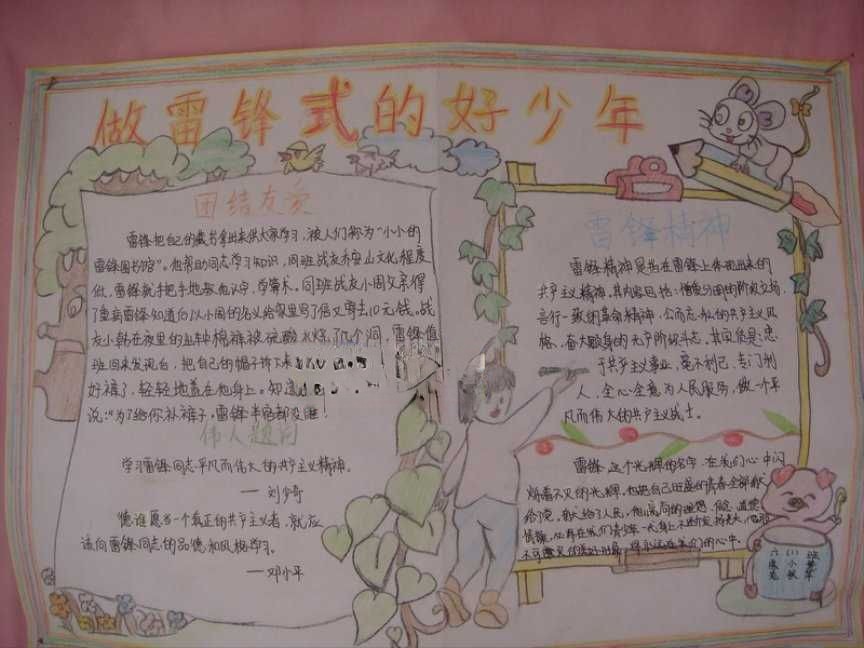 做雷锋式的好少年
团结友爱
雷锋把自己的藏书拿出来供大家学习，被人们称为“小小的
雷锋图书馆”。他帮助同志学习知识，同班战友乔安山文化程度
低，雷锋就手把手地教他认字，学算术。同班战友小周父亲得
了重病雷锋知道后以小周的名义给家里写了信又寄去10元钱。战
友小韩在夜里出车棉裤被硫酸水烧了几个洞，雷锋值
班回来发现后，把自己的帽子拆下来
好裤子，轻轻地盖在他身上。
说：“为了给你补裤子，雷锋半宿都没睡！
伟人题词
学习雷锋同志平凡而伟大的共产主义精神。
——刘少奇
谁愿当一个真正的共产主义者，就应
该向雷锋同志的品德和风格学习。
——邓小平
雷锋精神
雷锋精神是指在雷锋身上体现出来的
共产主义精神，其内容包括：憎爱分明的阶级立场，
言行一致的革命精神，公而忘私的共产主义风
格，奋不顾身的无产阶级斗志，其实质是：忠
于共产主义事业，毫不利己，专门利
人，全心全意为人民服务，做一个平
凡而伟大的共产主义战士。
雷锋，这个光辉的名字，在我们心中闪
烁着不灭的光辉，他把自己旺盛的青春全部献
给了党，献给了人民，他崇高的理想、信念、道德
情操
六(1)班